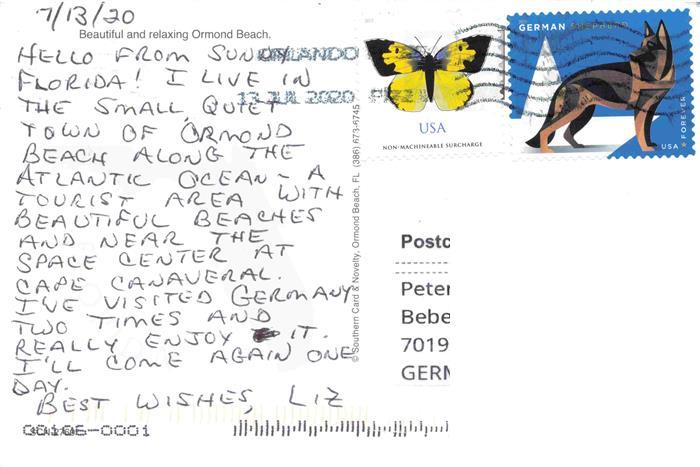 7/13/20
Beautiful and relaxing Ormond Beach.
HELLO FROM SUNNY
FLORIDA! I LIVE IN
THE SMALL, QUIET
TOWN OF ORMOND
BEACH ALONG THE
ATLANTIC OCEAN - A
TOURIST AREA WITH
BEAUTIFUL BEACHES
AND NEAR THE
SPACE CENTER AT
CAPE CANAVERAL.
I'VE VISITED GERMANY
TWO TIMES AND
REALLY ENJOY IT.
I'LL COME AGAIN ONE
DAY.
BEST WISHES, LIZ
ORLANDO
13 JUL 2020
© Southern Card & Novelty, Ormond Beach, FL (386) 673-6745
USA
NON-MACHINEABLE SURCHARGE
GERMAN SHEPHERD
FOREVER
USA
Postc
Peter
Bebe
7019
GERM
00106-0001